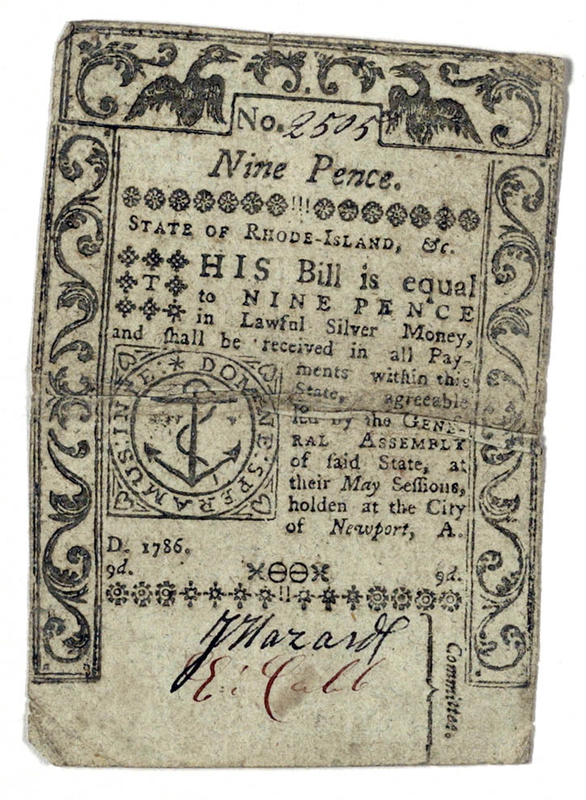 No. 2505
Nine Pence.
STATE OF RHODE-ISLAND, &c.
THIS Bill is equal
to NINE PENCE
in Lawful Silver Money,
and ſhall be received in all Pay-
ments within this
State, agreeable
led by the GENE-
RAL ASSEMBLY
of ſaid State, at
their May Seſſions,
holden at the City
of Newport, A.
D. 1786.
IN TE * DOMINE : SPERAMUS :
9d. 9d.
J Hazard
E: Cobb
Committee.